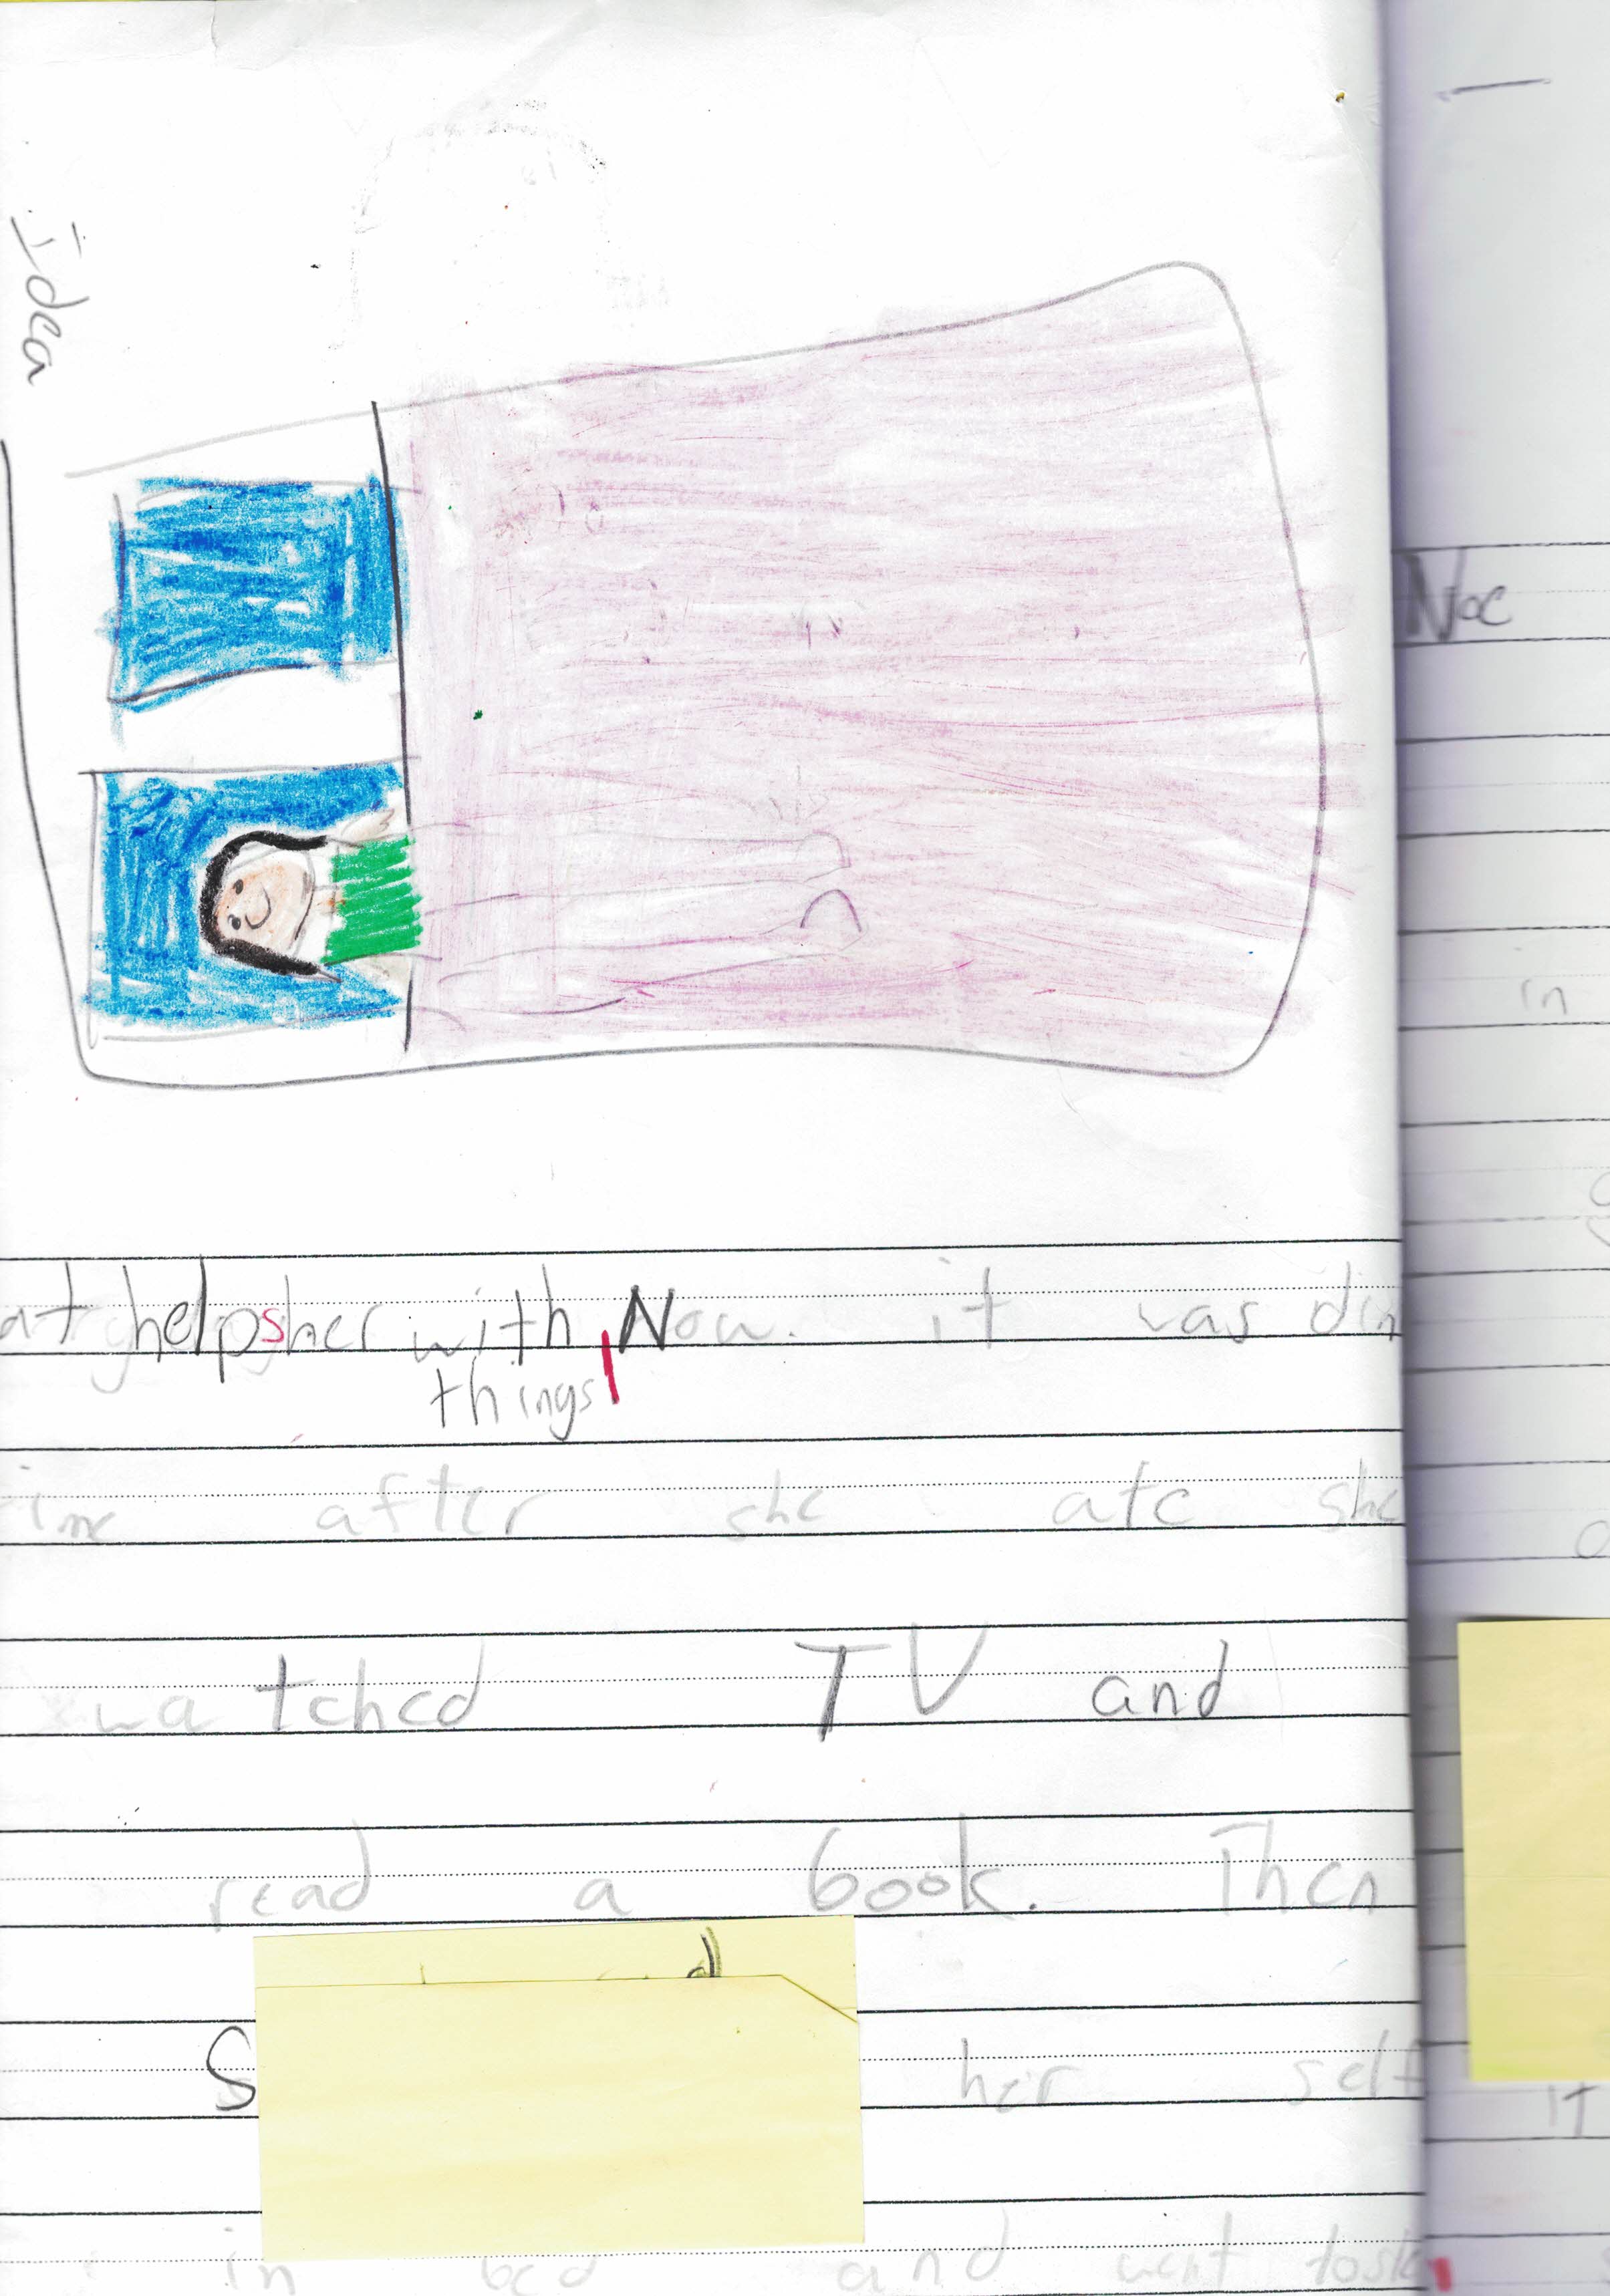 Idea
at helpsher with Now. it was din
things
ime after she ate she
watched TV and
read a book. Then
S her self
in bed and went
Noc
in
it